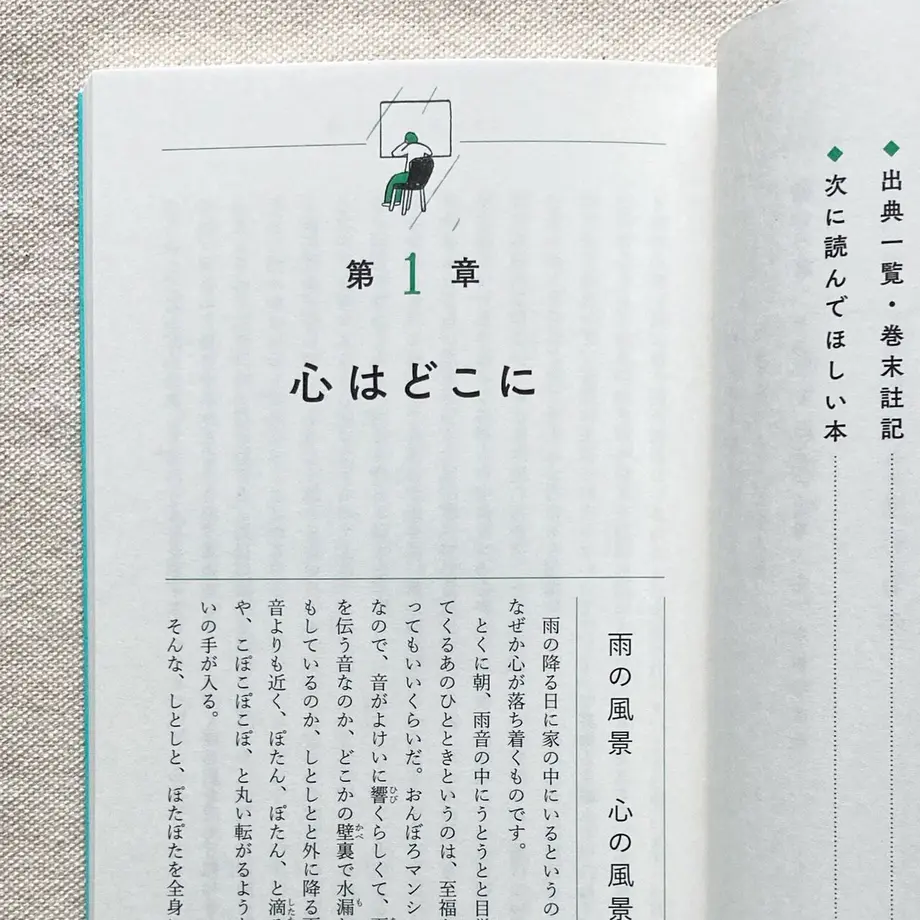 ◆出典一覧・巻末註記
◆次に読んでほしい本
第1章
心はどこに
雨の風景 心の風景
雨の降る日に家の中にいるというの
なぜか心が落ち着くものです。
とくに朝、雨音の中にうとうとと目
てくるあのひとときというのは、至福
ってもいいくらいだ。おんぼろマンシ
なので、音がよけいに響くらしくて、
を伝う音なのか、どこかの壁裏で水漏
もしているのか、しとしとと外に降る
音よりも近く、ぽたん、ぽたん、と滴
や、こぽこぽこぽ、と丸い転がるよう
いの手が入る。
そんな、しとしと、ぽたぽたを全身